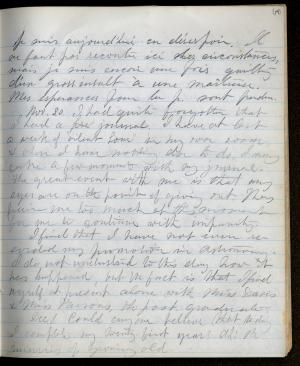 Je suis aujourd'hui en désespoir. Il
ne faut pas raconter ici les circonstances,
mais je suis encore une fois guilty
d'un gross insult à une maîtresse.
Mes espérances pour la p. sont perdu.
Nov. 20. I had quite forgotten that
I had a journal. I have at last
a week of silent tour in my own room
when I have nothing else to do. I may
a few moments with my journal.
The great event with me is that my
eyes are on the point of giving out. They
pain me too much at the moment
for me to continue with impunity.
I find that I have not even re-
corded my promotion in astronomy.
I do not understand to this day how it
has happened, but the fact is that I find
myself at present alone with Miss Davis
& Miss Parsons, the post graduate.
Dec. 1 Could anyone believe that today
I complete my twenty first year. Ah! the
miseries of growing old